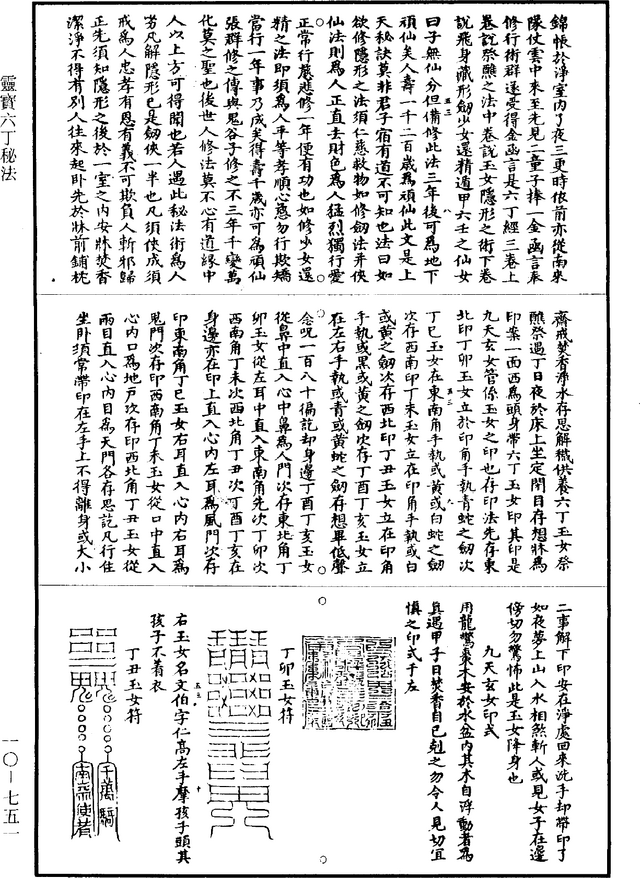 錦帳於淨室內了夜三更時依前亦從南來
隊仗雲中來至先見二童子捧一金函言奉
修行術群遂受得金函言是六丁經三卷上
卷說祭醮之法中卷說玉女隱形之術下卷
說飛身藏形劒少女還精遁甲六壬之仙女
曰子無仙分但備修此法三年後可為地下
頑仙矣人壽一千二百歲為頑仙此文是上
天秘訣莫非君子宿有道不可知也法曰如
欲修隱形之法須仁慈救物如修劒法并俠
仙法則為人正直去財色為人猛烈獨行愛
正常行嚴迸修一年便有功也如修少女還
精之法即須為人平等孝順心惠勿行欺矯
當行一年事乃成矣得壽千歲亦可為頑仙
張群修之傳與鬼谷子修之不三年千變萬
化莫之聖也後世人修法莫不心有道緣中
人以上方可得聞也若人遇此秘法術為人
苦凡解隱形已是劒俠一半也凡須俠成須
戒為人忠孝有恩有義不可欺負人斬邪歸
正先須知隱形之後於一室之內安牀焚香
潔淨不得有別人往來起卧先於牀前鋪枕
齋戒焚香淨水存思解穢供養六丁玉女祭
醮祭遇丁日夜於床上坐定閉目存想牀為
印案一面西為頭身帶六丁玉女印其印是
九天玄女管係玉女之印也存印法先存東
北印丁卯玉女立於印角手執青蛇之劒次
丁巳玉女在東南角手執或黃或白蛇之劒
次存西南印丁未玉女立在印角手執或白
或黃之劒次存西北印丁丑玉女立在印角
手執或黑或黃之劒次存丁酉丁亥玉女立
在左右手執或青或黃蛇之劒存想畢低聲
念呪一百八十徧訖却身邊丁酉丁亥玉女
從鼻中直入心中鼻為人門次存東北角丁
卯玉女從左耳中直入東南角先次丁卯次
西南角丁未次西北角丁丑次丁酉丁亥在
身邊亦在印上直入心內左耳為風門次存
印東南角丁巳玉女右耳直入心內右耳為
鬼門次存印西南角丁未玉女從口中直入
心內口為地戶次存印西北角丁丑玉女從
兩目直入心內目為天門各存思訖凡行住
坐卧須常帶印在左手上不得離身或大小
二事解下印安在淨處回來洗手却帶印了
如夜夢上山入水相煞斬人或見女子在邊
傍切勿驚怖此是玉女降身也
九天玄女印式
用龍驚棗木安於水盆內其木自浮動者為
真遇甲子日焚香自己剋之勿令人見切宜
慎之印式于左
丁卯玉女符
右玉女名文伯字仁高左手摩孩子頭其
孩子不着衣
丁丑玉女符
千萬騎
南帝使者
靈寶六丁秘法
一〇－七五一